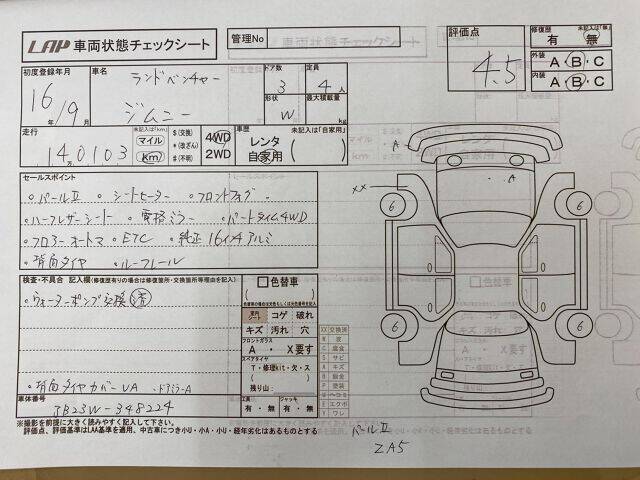 LAP 車両状態チェックシート
管理No
評価点
4.5
修復歴 未記入は「無」
有 無
外装 A・B・C
内装 A・B・C
初度登録年月
16年 9月
車名
ランドベンチャー
ジムニー
ドア数 3
定員 4人
形状 W
最大積載量 kg
走行 未記入は「km」
14万0103
マイル
km
$(交換)
*(改ざん)
#(不明)
4WD
2WD
車歴 未記入は「自家用」
レンタ
自家用
セールスポイント
・パールⅡ ・シートヒーター ・フロントフォグ
・ハーフレザーシート ・電格ミラー ・パートタイム4WD
・フロアーオートマ ・ETC ・純正16インチアルミ
・背面タイヤ ・ルーフレール
検査・不具合 記入欄(修復歴有りの場合は修復箇所・交換箇所等理由を記入)
・ウォーターポンプ交換済
・背面タイヤカバーUA ・ドアミラーA
色替車
コゲ 破れ
キズ 汚れ 穴
フロントガラス
A ・ X要す
スペアタイヤ
T・修理kit・欠・ス
残り山
工具 有・無
ジャッキ 有・無
XX 交換済
W 波
C 腐食
S サビ
A キズ
B 鈑金
P 塗装
U ヘコミ
E エクボ
Y ワレ
車体番号
JB23W-348224
※撮影を前提に大きく読みやすく記入して下さい。
評価点、評価基準はLAA基準を適用、中古車につき小U・小A・小U・経年劣化はあるものとする
A
A
XX
6
6
6
6
パールⅡ
ZA5